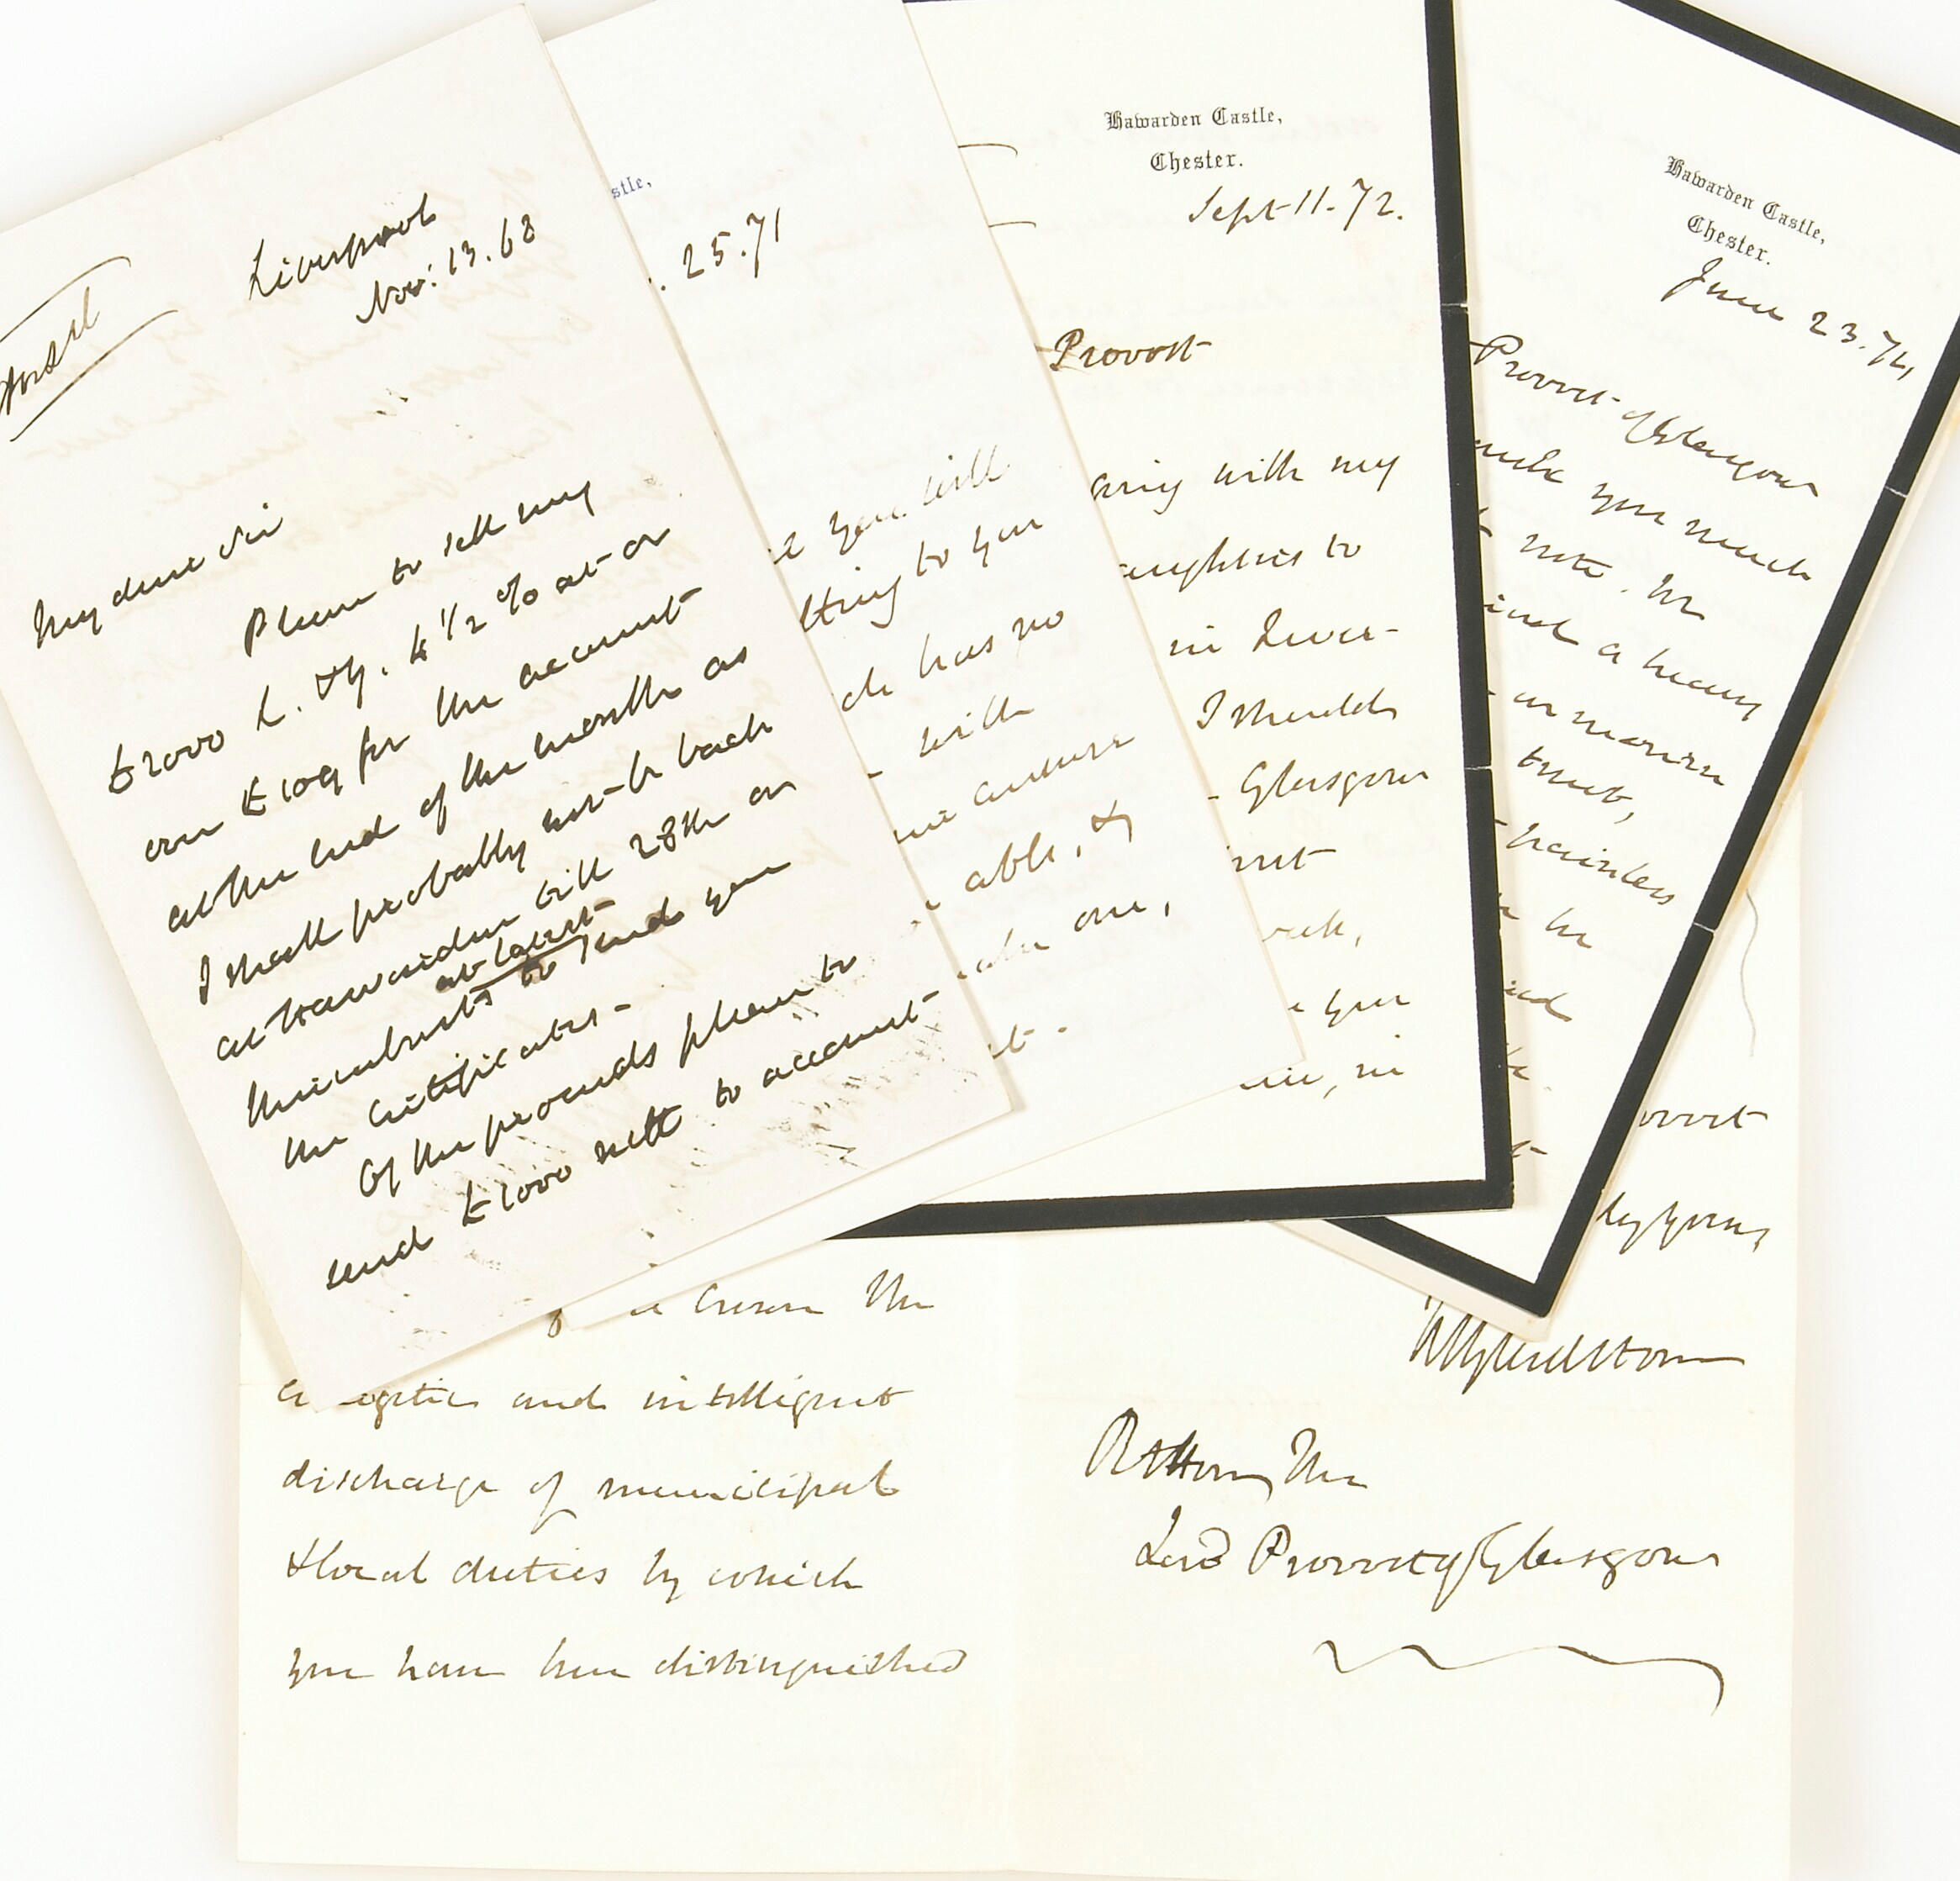 Liverpool
Nov: 13. 68
My dear Sir
Please to sell my
£2000 L. & Y. 4 1/2 % at or
over £109 for the account
at the end of the month as
I shall probably not be back
at Hawarden till 28th or
at least
thereabouts to send you
the certificates.
Of the proceeds please to
send £1000 nett to account
stle,
. 25. 71
you will
lting to you
has no
with
me
able, &
one,
Hawarden Castle,
Chester.
Sept 11. 72.
Provost
with my
aughters to
in Liver-
I should
Glasgow
you
in
Hawarden Castle,
Chester.
June 23. 74
Provost of Glasgow
you much
note. He
a heavy
or mourn
painless
he
the
energetic and intelligent
discharge of municipal
& local duties by which
you have been distinguished
ovost
ly yours,
WEGladstone
Rt Hon The
Lord Provost of Glasgow